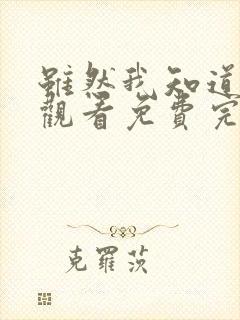 雖然我知道
觀看免費完
克羅茨